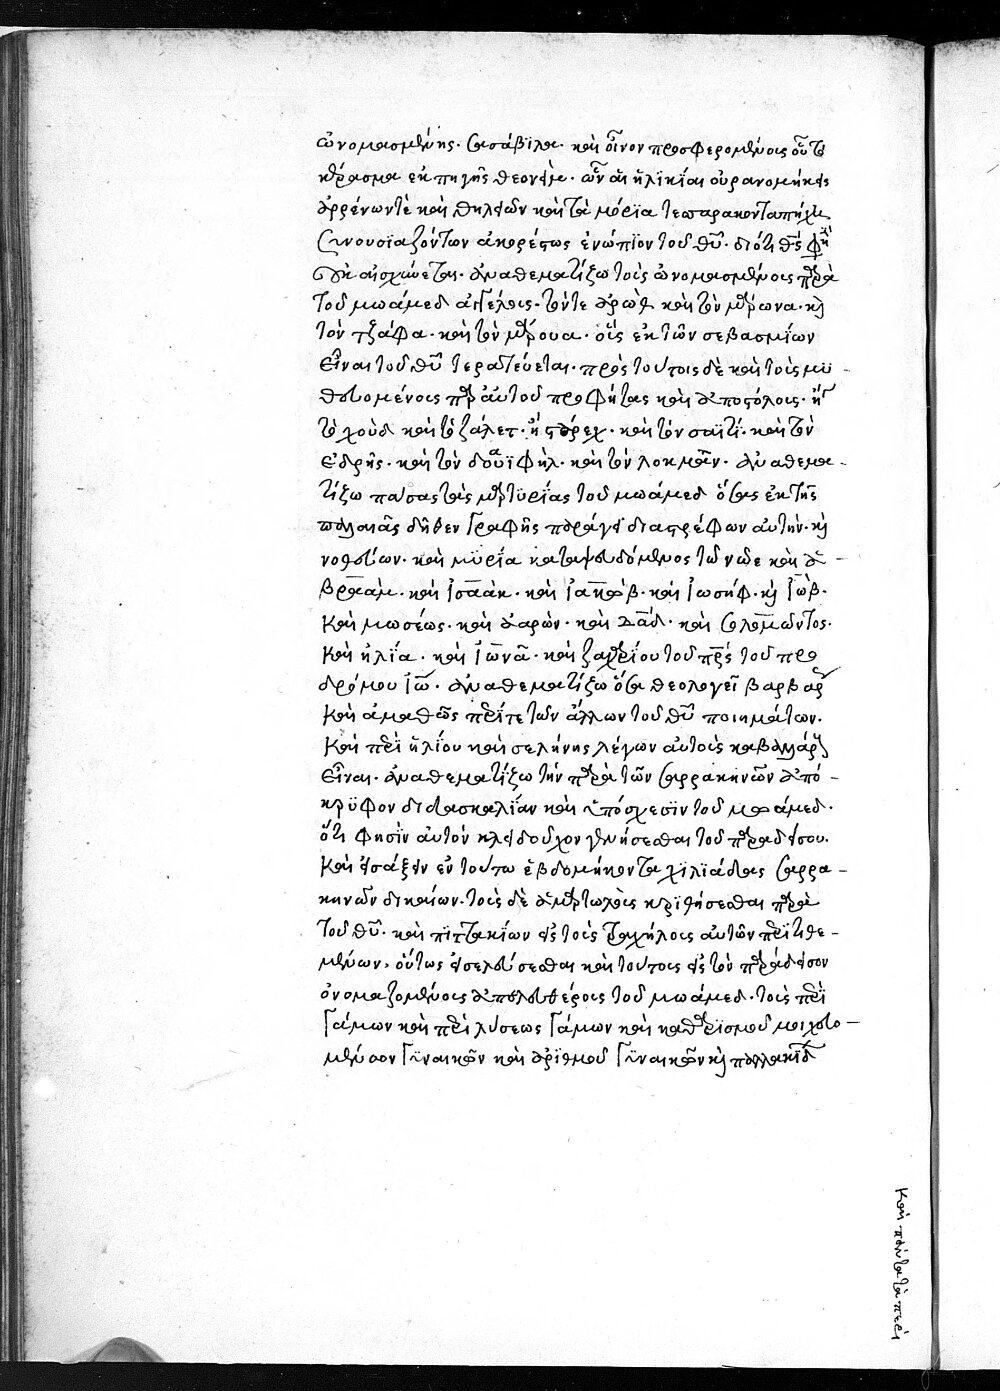 ὠνομασμένης. σασάβϊλα. καὶ οἶνον προσφερομένοις οὗ τὸ
κέρασμα ἐκ πηγῆς θεονίμ. ὧν αἱ ἡλικίαι οὐρανομήκεις
ἀρρένων τὲ καὶ θηλειῶν καὶ τὰ μόρϊα τεσσαρακονταπήχη
συνουσϊαζόντων ἀκορέστως ἐνώπϊον τοῦ θῦ. διότι θς φη
οὐκ αἰσχύνεται. ἀναθεματίζω τοὺς ὠνομασμένους παρὰ
τοῦ μωάμεδ ἀγγέλους. τόν τε ἀρὼθ καὶ τὸν μαρωνα. κὶ
τὸν τζάφα. καὶ τὸν μάρουα. οὓς ἐκ τῶν σεβασμίων
εἶναι τοῦ θῦ τερατεύεται. πρὸς τούτοις δὲ καὶ τοὺς μϋ-
θευομένους παρ' αὐτοῦ προφήτας καὶ ἀποστόλους. ἤ
τὸ χοὺδ καὶ τὸ ζάλετ. ἢ στόρεχ. καὶ τὸν σαϊτί. καὶ τὸν
ἐδρῆς. καὶ τὸν δουαϊφήλ. καὶ τὸν λοκμᾶν. ἀναθεμα-
τίζω πάσας τὰς μαρτυρίας τοῦ μωάμεδ ὅσας ἐκ τῆς
παλαιᾶς δῆθεν γραφῆς παράγει διαστρέφων αὐτήν. κὶ
νοθεύων. καὶ μϋρία καταψευδόμενος τοῦ νῶε καὶ ἀ-
βραάμ. καὶ ἰσαάκ. καὶ ἰακώβ. καὶ ἰωσήφ. κὶ ἰώβ.
καὶ μωσέως. καὶ ἀαρών. καὶ δαδ. καὶ σολομῶντος.
καὶ ἠλία. καὶ ἰωνᾶ. καὶ ζαχαρίου τοῦ πρς τοῦ προ
δρόμου ἰω. ἀναθεματίζω ὅσα θεολογεῖ βαρβάρως
καὶ ἀμαθῶς περί τε τῶν ἄλλων τοῦ θῦ ποιημάτων.
καὶ περὶ ἡλίου καὶ σελήνης λέγων αὐτοὺς καβαλλάρους
εἶναι. ἀναθεματίζω τὴν παρὰ τῶν σαρρακηνῶν ἀπό-
κρϋφον διδασκαλίαν καὶ ὑπόσχεσϊν τοῦ μωάμεδ.
ὅτι φησὶν αὐτὸν κλειδοῦχον γενήσεσθαι τοῦ παραδείσου.
καὶ εἰσάξειν ἐν τούτω ἑβδομήκοντα χϊλϊάδας σαρρα-
κηνῶν δικαίων. τοὺς δὲ ἁμαρτωλοὺς κρϊθήσεσθαι παρὰ
τοῦ θῦ. καὶ πϊττακίων εἰς τοὺς τραχήλους αὐτῶν περϊτϊθε-
μένων, οὕτως εἰσελεύσεσθαι καὶ τούτους εἰς τὸν παράδεισον
ὀνομαζομένους ἀπελευθέρους τοῦ μωάμεδ. τοὺς περὶ
γάμων καὶ περὶ λύσεως γάμων καὶ καθαρϊσμοῦ μοιχευο-
μένων γϋναικῶν καὶ ἀριθμοῦ γϋναικῶν κὶ παλλακίδ
καὶ πάντα τὰ περὶ